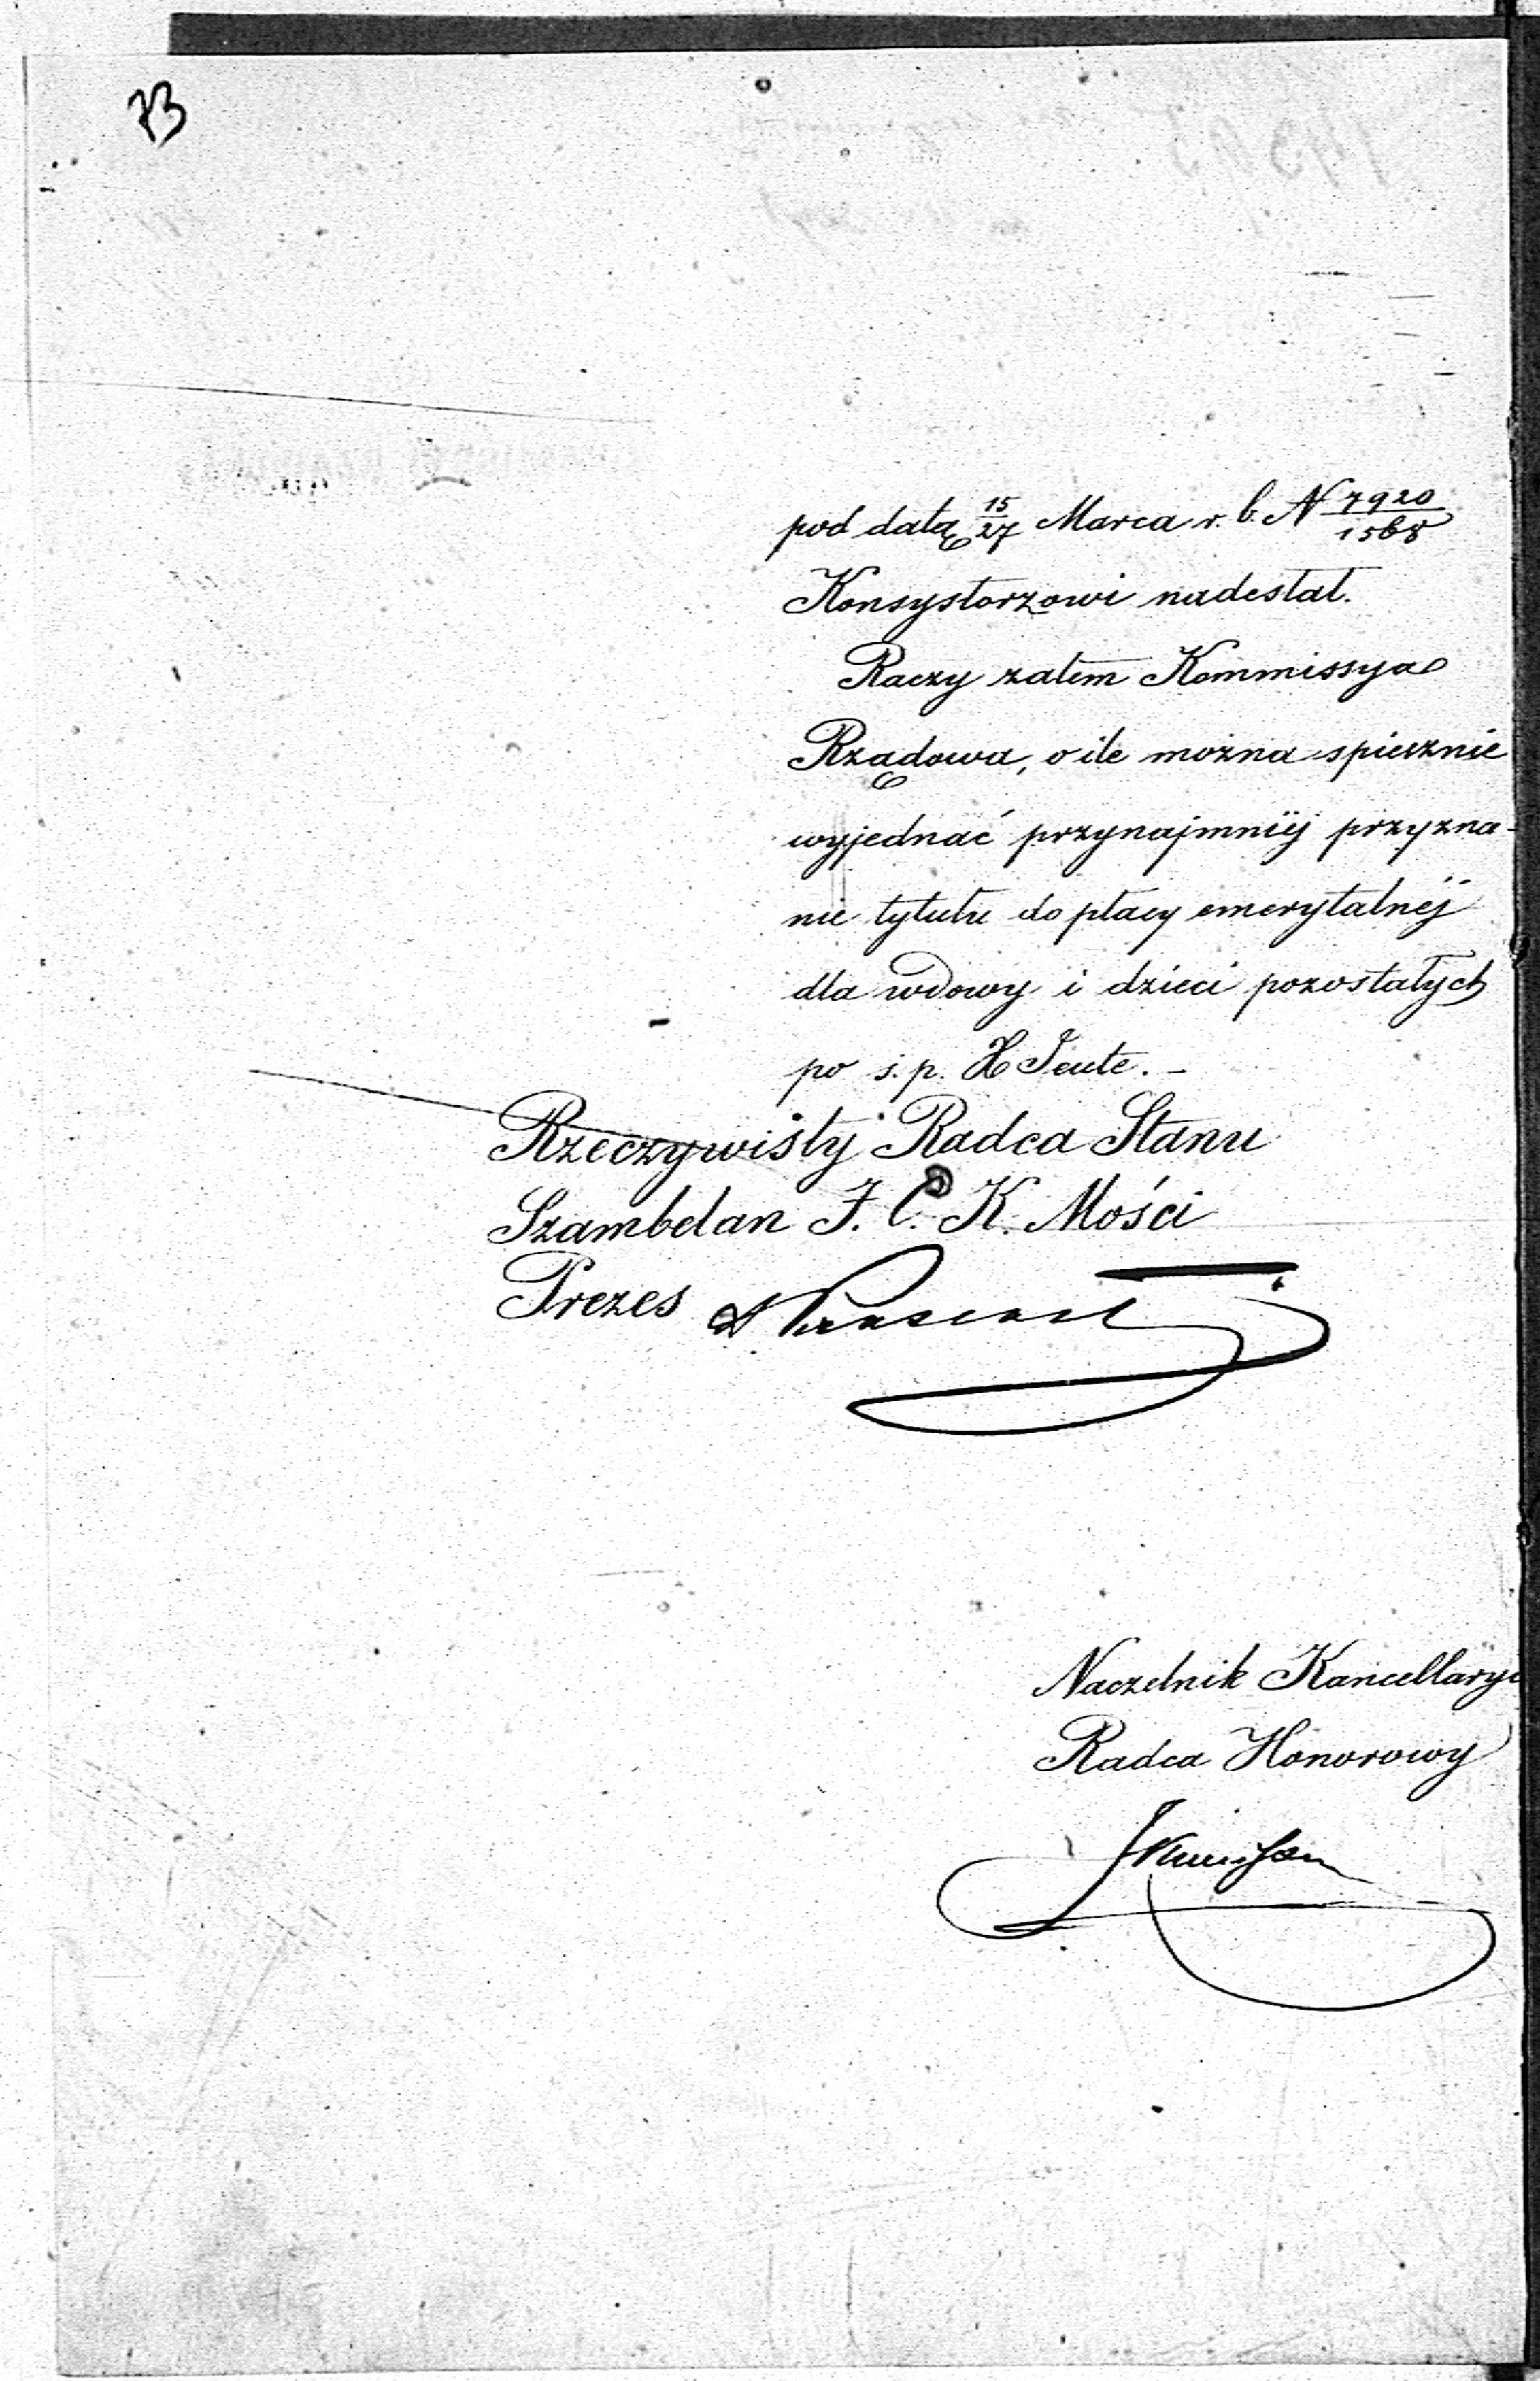 73
pod datą 15/27 Marca r. b. N 7920/1568
Konsystorzowi nadesłał.
Raczy zatem Kommissya
Rządowa, o ile można spiesznie
wyjednać przynajmniéj przyzna-
nie tytułu do płacy emerytalnéj
dla wdowy i dzieci pozostałych
po ś. p. X Teute. -
Rzeczywisty Radca Stanu
Szambelan J. C. K. Mości
Prezes
Naczelnik Kancellaryi
Radca Honorowy